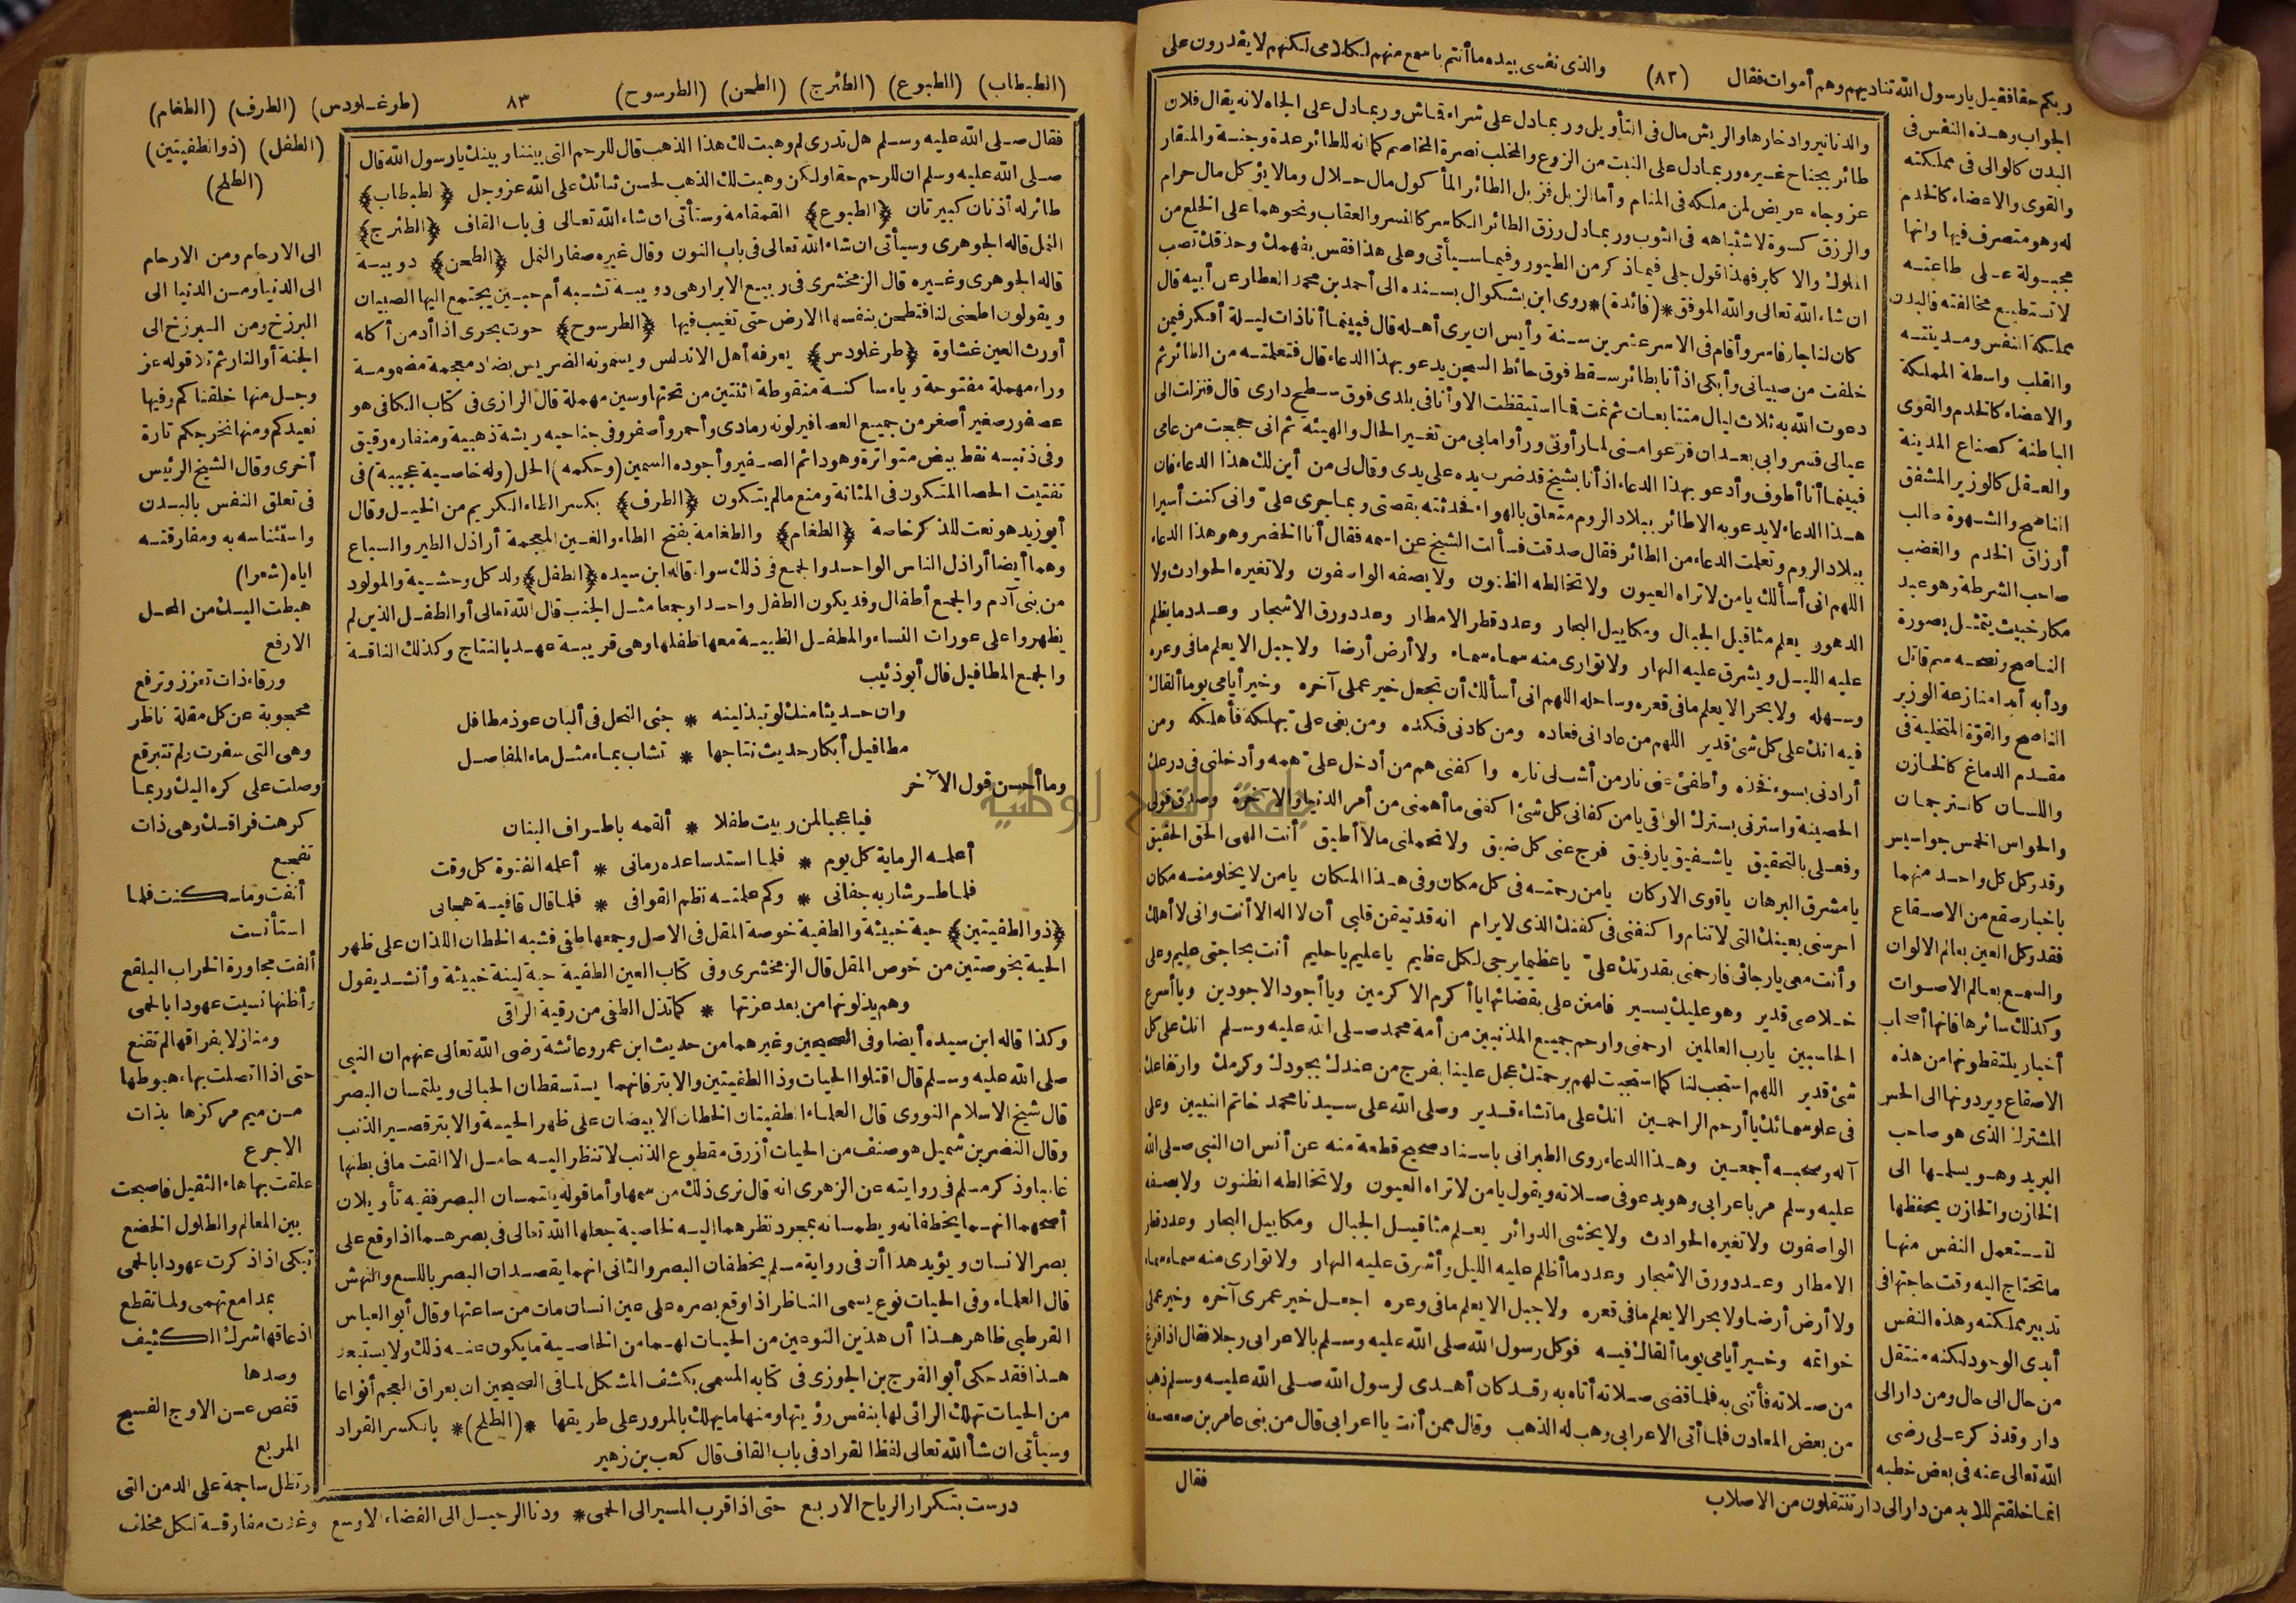 ربكم حقا فقيل يا رسول الله تناديهم وهم أموات فقال (٨٢) والذى نفسى بيده ما أنتم باسمع منهم لكلامى لكنهم لا يقدرون على
الجواب وهذه النفس فى
البدن كالوالى فى مملكته
والقوى والاعضاء كالخدم
له وهو متصرف فيها وانها
مجبولة على طاعته
لا تستطيع مخالفته فالبدن
مملكة النفس ومدينته
والقلب واسطة المملكة
والاعضاء كالخدم والقوى
الباطنة كصناع المدينة
والعقل كالوزير المشفق
الناصح والشهوة طالب
أرزاق الخدم والغضب
صاحب الشرطة وهو عبد
مكار خبيث يتمثل بصورة
الناصح ونصحه سم قاتل
ودأبه أبدا منازعة الوزير
الناصح والقوة المتخيلة فى
مقدم الدماغ كالخازن
واللسان كالترجمان
والحواس الخمس جواسيس
وقد وكل كل واحد منهما
باخبار صقع من الاصقاع
فقد وكل العين بعالم الالوان
والسمع بعالم الاصوات
وكذلك سائرها فانها أصحاب
أخبار يلتقطونها من هذه
الاصقاع ويردونها الى الحس
المشترك الذى هو صاحب
البريد وهو يسلمها الى
الخازن والخازن يحفظها
لتستعمل النفس منها
ما تحتاج اليه وقت حاجتها فى
تدبير مملكته وهذه النفس
أبدى الوجود لكنه منتقل
من حال الى حال ومن دار الى
دار وقد ذكر على رضى
الله تعالى عنه فى بعض خطبه
انما خلقتم للابد من دار الى دار تنتقلون من الاصلاب
والدنانير وادخارها والريش مال فى التأويل وربما دل على شراء قماش وربما دل على الجاه لانه يقال فلان
طائر بجناح غيره وربما دل على النبت من الزرع والمخلب نصرة المخاصم كما انه للطائر عدة وجنة والمنقار
عز وجاه عريض لمن ملكه فى المنام وأما الزبل فزبل الطائر المأكول مال حلال وما لا يؤكل مال حرام
والرزق كسوة لاشتباهه فى الثوب وربما دل رزق الطائر الكاسر كالنسر والعقاب ونحوهما على الخلع من
الملوك والاكابر فهذا قول جلى فيما ذكر من الطيور وفيما سيأتى وعلى هذا فقس بفهمك وحذقك تصب
ان شاء الله تعالى والله الموفق *(فائدة)* روى ابن بشكوال بسنده الى أحمد بن محمد العطار عن أبيه قال
كان لنا جار فاسر وأقام فى الاسر عشرين سنة وأيس ان يرى أهله قال فبينما أنا ذات ليلة أفكر فيمن
خلفت من صبيانى وأبكى اذ أنا بطائر سقط فوق حائط السجن يدعو بهذا الدعاء قال فتعلمته من الطائر ثم
دعوت الله به ثلاث ليال متتابعات ثم نمت فما استيقظت الا وأنا فى بلدى فوق سطح دارى قال فنزلت الى
عيالى فسروا بى بعد ان فزعوا منى لما رأونى ورأوا ما بى من تغير الحال والهيئة ثم انى حججت من عامى
فبينما أنا أطوف وأدعو بهذا الدعاء اذ أنا بشيخ قد ضرب يده على يدى وقال لى من أين لك هذا الدعاء فان
هذا الدعاء لا يدعو به الا طائر ببلاد الروم متعلق بالهواء فحدثته بقصتى وبما جرى علىّ وانى كنت أسيرا
ببلاد الروم وتعلمت الدعاء من الطائر فقال صدقت فسألت الشيخ عن اسمه فقال أنا الخضر وهو هذا الدعاء
اللهم انى أسألك يا من لا تراه العيون ولا تخالطه الظنون ولا يصفه الواصفون ولا تغيره الحوادث ولا
الدهور يعلم مثاقيل الجبال ومكاييل البحار وعدد قطر الامطار وعدد ورق الاشجار وعدد ما يظلم
عليه الليل ويشرق عليه النهار ولا توارى منه سماء سماء ولا أرض أرضا ولا جبل الا يعلم ما فى وعره
وسهله ولا بحر الا يعلم ما فى قعره وساحله اللهم انى أسألك أن تجعل خير عملى آخره وخير أيامى يوما ألقاك
فيه انك على كل شئ قدير اللهم من عادانى فعاده ومن كادنى فكده ومن بغى علىّ بهلكة فأهلكه ومن
أرادنى بسوء فخذه وأطفئ عنى نار من أشب لى ناره واكفنى هم من أدخل علىّ همه وأدخلنى فى درعك
الحصينة واسترنى بسترك الواقى يا من كفانى كل شئ اكفنى ما أهمنى من أمر الدنيا والآخرة وصدق قولى
وفعلى بالتحقيق يا شفيق يا رفيق فرج عنى كل ضيق ولا تحملنى ما لا أطيق أنت الهى الحق الحقيق
يا مشرق البرهان يا قوى الاركان يا من رحمته فى كل مكان وفى هذا المكان يا من لا يخلو منه مكان
احرسنى بعينك التى لا تنام واكنفنى فى كنفك الذى لا يرام انه قد تيقن قلبى أن لا اله الا أنت وانى لا أهلك
وأنت معى يا رجائى فارحمنى بقدرتك علىّ يا عظيما يرجى لكل عظيم يا عليم يا حليم أنت بحاجتى عليم وعلى
خلاصى قدير وهو عليك يسير فامنن على بقضائها يا أكرم الاكرمين ويا أجود الاجودين ويا أسرع
الحاسبين يا رب العالمين ارحمنى وارحم جميع المذنبين من أمة محمد صلى الله عليه وسلم انك على كل
شئ قدير اللهم استجب لنا كما استجبت لهم برحمتك عجل علينا بفرج من عندك بجودك وكرمك وارتفاعك
فى علو سمائك يا أرحم الراحمين انك على ما تشاء قدير وصلى الله على سيدنا محمد خاتم النبيين وعلى
آله وصحبه أجمعين وهذا الدعاء روى الطبرانى باسناد صحيح قطعة منه عن أنس ان النبى صلى الله
عليه وسلم مر باعرابى وهو يدعو فى صلاته ويقول يا من لا تراه العيون ولا تخالطه الظنون ولا يصفه
الواصفون ولا تغيره الحوادث ولا يخشى الدوائر يعلم مثاقيل الجبال ومكاييل البحار وعدد قطر
الامطار وعدد ورق الاشجار وعدد ما أظلم عليه الليل وأشرق عليه النهار ولا توارى منه سماء سماء
ولا أرض أرضا ولا بحر الا يعلم ما فى قعره ولا جبل الا يعلم ما فى وعره اجعل خير عمرى آخره وخير عملى
خواتمه وخير أيامى يوما ألقاك فيه فوكل رسول الله صلى الله عليه وسلم بالاعرابى رجلا فقال اذا فرغ
من صلاته فأتنى به فلما قضى صلاته أتاه به وقد كان أهدى لرسول الله صلى الله عليه وسلم ذهب
من بعض المعادن فلما أتى الاعرابى وهب له الذهب وقال ممن أنت يا اعرابى قال من بنى عامر بن صعصعة
فقال
(الطبطاب) (الطبوع) (الطئرج) (الطحن) (الطرسوح) ٨٣ (طرغلودس) (الطرف) (الطغام)
(الطفل) (ذو الطفيتين)
(الطلح)
فقال صلى الله عليه وسلم هل تدرى لم وهبت لك هذا الذهب قال للرحم التى بيننا وبينك يا رسول الله قال
صلى الله عليه وسلم ان للرحم حقا ولكن وهبت لك الذهب لحسن ثنائك على الله عز وجل ﴿الطبطاب﴾
طائر له أذنان كبيرتان ﴿الطبوع﴾ القمقامة وستأتى ان شاء الله تعالى فى باب القاف ﴿الطئرج﴾
النمل قاله الجوهرى وسيأتى ان شاء الله تعالى فى باب النون وقال غيره صغار النمل ﴿الطحن﴾ دويبة
قاله الجوهرى وغيره قال الزمخشرى فى ربيع الابرار هى دويبة تشبه أم حبين يجتمع اليها الصبيان
ويقولون اطحنى لنا فتطحن بنفسها الارض حتى تغيب فيها ﴿الطرسوح﴾ حوت بحرى اذا أدمن أكله
أورث العين غشاوة ﴿طرغلودس﴾ يعرفه أهل الاندلس ويسمونه الضريس بضاد معجمة مضمومة
وراء مهملة مفتوحة وياء ساكنة منقوطة اثنتين من تحتها وسين مهملة قال الرازى فى كتاب الكافى هو
عصفور صغير أصغر من جميع العصافير لونه رمادى وأحمر وأصفر وفى جناحيه ريشة ذهبية ومنقاره رقيق
وفى ذنبه نقط بيض متواترة وهو دائم الصفير وأجوده السمين (وحكمه) الحل (وله خاصية عجيبة) فى
تفتيت الحصا المتكون فى المثانة ومنع ما لم يتكون ﴿الطرف﴾ بكسر الطاء الكريم من الخيل وقال
أبو زيد هو نعت للذكر خاصة ﴿الطغام﴾ والطغامة بفتح الطاء والغين المعجمة أراذل الطير والسباع
وهما أيضا أراذل الناس الواحد والجمع فى ذلك سواء قاله ابن سيده ﴿الطفل﴾ ولد كل وحشية والمولود
من بنى آدم والجمع أطفال وقد يكون الطفل واحدا وجمعا مثل الجنب قال الله تعالى أو الطفل الذين لم
يظهروا على عورات النساء والمطفل الظبية معها طفلها وهى قريبة عهد بالنتاج وكذلك الناقة
والجمع المطافيل قال أبو ذئيب
وان حديثا منك لو تبذلينه * جنى النحل فى ألبان عوذ مطافل
مطافيل أبكار حديث نتاجها * تشاب بماء مثل ماء المفاصل
وما أحسن قول الآخر
فيا عجبا لمن ربيت طفلا * ألقمه باطراف البنان
أعلمه الرماية كل يوم * فلما استد ساعده رمانى * أعلمه الفتوة كل وقت
فلما طر شاربه جفانى * وكم علمته نظم القوافى * فلما قال قافية هجانى
﴿ذو الطفيتين﴾ حية خبيثة والطفية خوصة المقل فى الاصل وجمعها طفى فشبه الخطان اللذان على ظهر
الحية بخوصتين من خوص المقل قال الزمخشرى وفى كتاب العين الطفية حية لينة خبيثة وأنشد يقول
وهم يذلونها من بعد عزتها * كما تذل الطفى من رقية الراقى
وكذا قاله ابن سيده أيضا وفى الصحيحين وغيرهما من حديث ابن عمر وعائشة رضى الله تعالى عنهم ان النبى
صلى الله عليه وسلم قال اقتلوا الحيات وذا الطفيتين والابتر فانهما يستسقطان الحبالى ويلتمسان البصر
قال شيخ الاسلام النووى قال العلماء الطفيتان الخطان الابيضان على ظهر الحية والابتر قصير الذنب
وقال النضر بن شميل هو صنف من الحيات أزرق مقطوع الذنب لا تنظر اليه حامل الا القت ما فى بطنها
غالبا وذكر مسلم فى روايته عن الزهرى انه قال نرى ذلك من سمها وأما قوله يلتمسان البصر ففيه تأويلان
أصحهما انهما يخطفانه ويطمسانه بمجرد نظرهما اليه لخاصية جعلها الله تعالى فى بصرهما اذا وقع على
بصر الانسان ويؤيد هذا أن فى رواية مسلم يخطفان البصر والثانى انهما يقصدان البصر باللسع والنهش
قال العلماء وفى الحيات نوع يسمى الناظر اذا وقع بصره على عين انسان مات من ساعتها وقال أبو العباس
القرطبى ظاهر هذا أن هذين النوعين من الحيات لهما من الخاصية ما يكون عنه ذلك ولا يستبعد
هذا فقد حكى أبو الفرج بن الجوزى فى كتابه المسمى بكشف المشكل لما فى الصحيحين ان بعراق العجم أنواعا
من الحيات تهلك الرائى لها بنفس رؤيتها ومنها ما يهلك بالمرور على طريقها *(الطلح)* بالكسر القراد
وسيأتى ان شاء الله تعالى لفظ القراد فى باب القاف قال كعب بن زهير
الى الارحام ومن الارحام
الى الدنيا ومن الدنيا الى
البرزخ ومن البرزخ الى
الجنة أو النار ثم تلا قوله عز
وجل منها خلقناكم وفيها
نعيدكم ومنها نخرجكم تارة
أخرى وقال الشيخ الرئيس
فى تعلق النفس بالبدن
واستئناسه به ومفارقته
اياه (شعرا)
هبطت اليك من المحل
الارفع
ورقاء ذات تعزز وترفع
محجوبة عن كل مقلة ناظر
وهى التى سفرت ولم تتبرقع
وصلت على كره اليك وربما
كرهت فراقك وهى ذات
تفجع
أنفت وما سكنت فلما
استأنست
ألفت مجاورة الخراب البلقع
وأظنها نسيت عهودا بالحمى
ومنازلا بفراقها لم تقنع
حتى اذا اتصلت بهاء هبوطها
من ميم مركزها بذات
الاجرع
علقت بها هاء الثقيل فاصبحت
بين المعالم والطلول الخضع
تبكى اذا ذكرت عهودا بالحمى
بمدامع تهمى ولما تقطع
اذ عاقها شرك الكثيف
وصدها
قفص عن الاوج الفسيح
المربع
وتظل ساجعة على الدمن التى
درست بتكرار الرياح الاربع حتى اذا قرب المسير الى الحمى * ودنا الرحيل الى الفضاء الاوسع وغدت مفارقة لكل مخلف
جامعة النجاح الوطنية